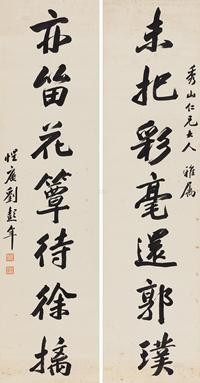 秀山仁兄大人 雅属
未把彩毫還郭璞
亦笛花簟待徐摛
惺庵劉彭年